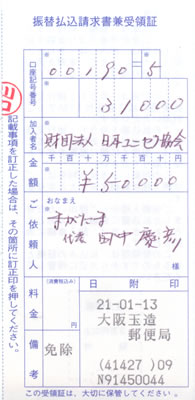 振替払込請求書兼受領証
口座記号番号
00190=5
31000
加入者名
財団法人 日本ユニセフ協会
金額
千 百 十 万 千 百 十 円
¥50000
ご依頼人
おなまえ
すがたーま
代表 田中 慶彦
様
料金
(消費税込み)
円
備考
免除
日附印
21-01-13
大阪玉造
郵便局
(41427)09
N91450044
記載事項を訂正した場合は、その箇所に訂正印を押してください。
この受領証は、大切に保管してください。